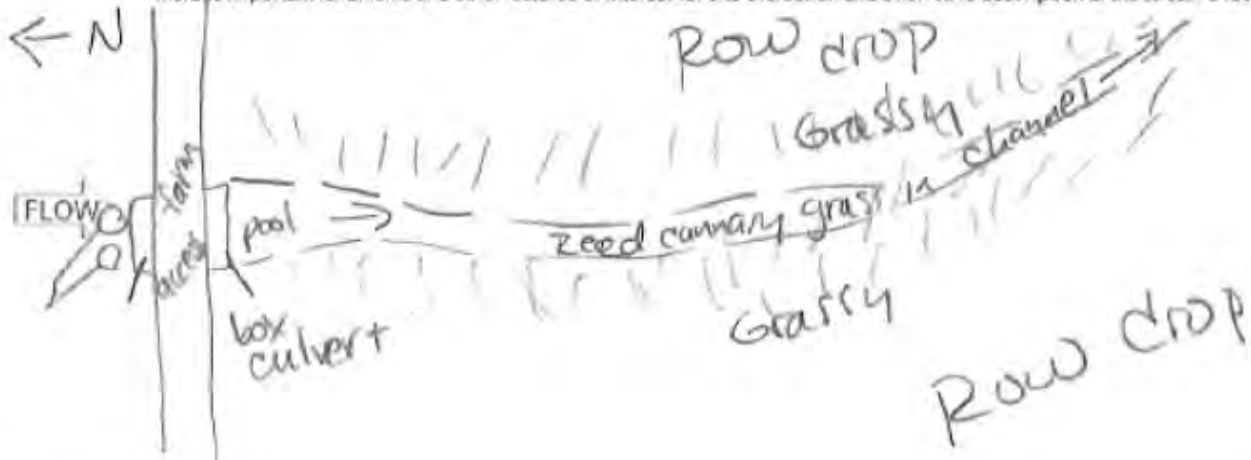 ← N
Row crop
Grassy
farm
access
FLOW
pool
reed cannary grass in channel
box
culvert
Grassy
Row crop